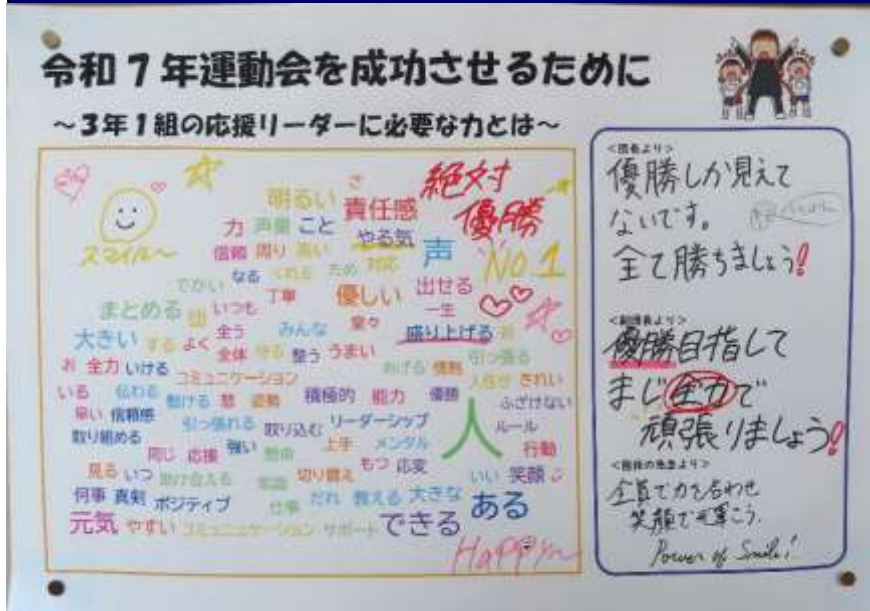 令和7年運動会を成功させるために
～3年1組の応援リーダーに必要な力とは～
絶対
優勝
No.1
スマイル～
明るい さ 責任感
力 声量 こと やる気 声
信頼 周り 高い 対応
でかい なる くれる ため
丁寧 優しい 出せる
まとめる 団 いつも 一生
大きい する よく 全う みんな 堂々 盛り上げる
全体 守る 整う うまい 引っ張る
お 全力 いける あげる 情熱
コミュニケーション 人任せ きれい
いる 伝わる 動ける 姿勢 積極的 能力 優勝 ふざけない
早い 信頼感 引っ張れる 取り込む リーダーシップ 人 ルール
取り組める 同じ 応援 強い 懸命 上手 メンタル 行動
見る いつ 助け合える 常識 切り替え もつ 応変 いい 笑顔
何事 真剣 ポジティブ 仕事 だれ 教える 大きな ある
元気 やすい コミュニュケーション サポート できる
Happy～
<団長より>
優勝しか見えて
ないです。
全て勝ちましょう!
<副団長より>
優勝目指して
まじ全力で
頑張りましょう!
<担任の先生より>
全員で力を合わせ
笑顔で輝こう.
Power of Smile!